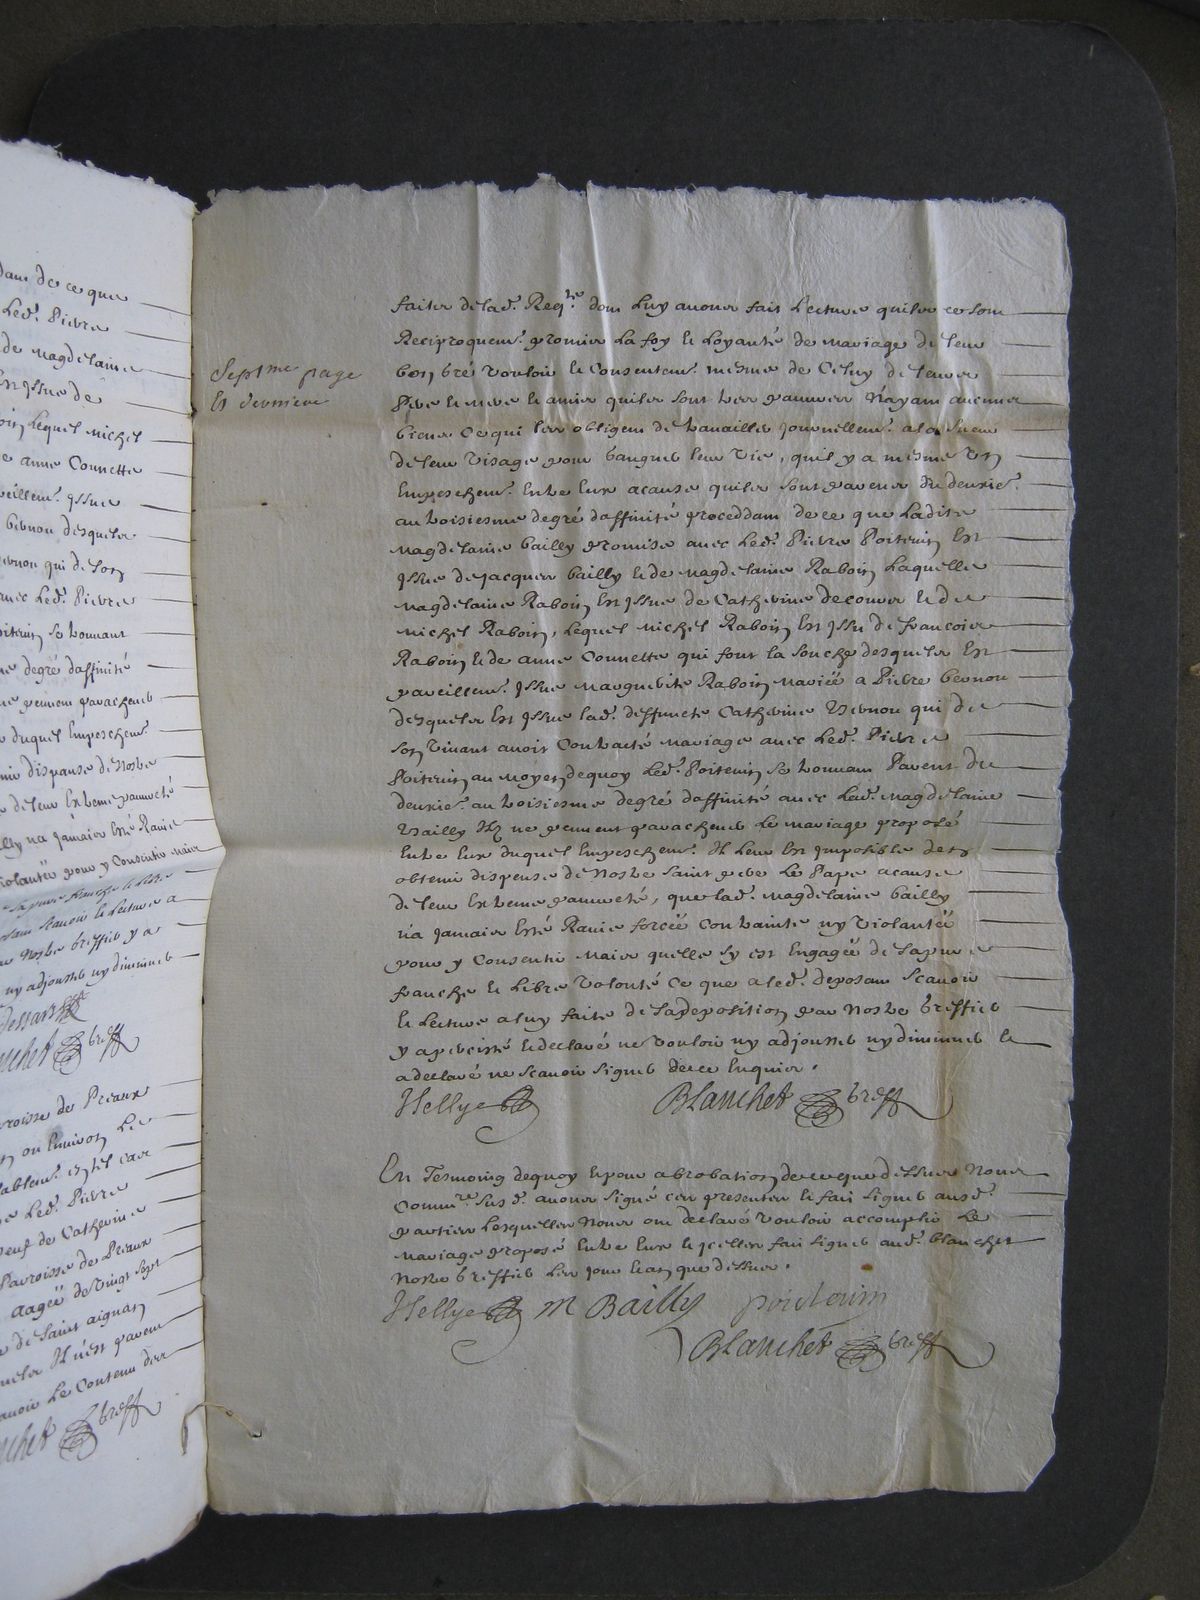 dans de ce que
Led. Pierre
de magdelaine
Est Jssue de
Lequel michel
anne Connette
pareillem.t Jssue
bernon desquels
bernon qui de son
avec Led. Pierre
poiterin se trouvant
degré daffinité
peuvent parachever
duquel Empeschem.t
dispanse de nostre
de leur Extreme pauvreté
bailly na jamais Esté Ravie
violantée pour y Consentir mais
sa pure franche et libre
deposant scauoir et Lecture a
nostre Greffier y a
ny adjouster ny diminuer
Blanchet greff
parroisse de Preaux
ou Environ Le
veritablem.t est tel car
Led. Pierre
veuf de Catherine
Parroisse de Preaux
aagée de Vingt sept
de saint aignan
Il n'est parent
scauoir Le Contenu dess
Blanchet greff
Septme page
Et derniere
faites de lad. Reqte. dont luy auons fait Lecture quils ce sont
Reciproquem.t promis La foy et Loyauté de mariage de leur
bon gré vouloir et Consentem.t mesme de Celuy de leurs
Pere et mere et amis quils sont tres pauvres N'ayant aucuns
biens Ce qui les obligent de travailler journellem.t a la Sueur
de leur visage pour gangner leur vie, quil y a mesme Un
Empeschem.t Entre Eux a cause quils sont parens du deuxie.
au troisiesme degré daffinité proceddant de ce que Ladite
magdelaine bailly promise avec Led. Pierre Poiterin Est
Jssue de jacques bailly et de magdelaine Raboin Laquelle
magdelaine Raboin Est Jssue de Catherine decours et de
michel Raboin, Lequel michel Raboin Est Jssu de francois
Raboin et de anne Connette qui font la souche desquels Est
pareillem.t Jssue marguerite Raboin mariée a Pierre bernon
desquels Est Jssue lad. deffuncte Catherine Bernon qui de
son vivant auoit Contracté mariage avec Led. Pierre
Poiterin au moyen dequoy Led. Poiterin se trouvant Parent du
deuxie. au troisiesme degré daffinité avec Lad. magdelaine
Bailly Ilz ne peuvent parachever Le mariage proposé
Entre Eux duquel Empeschem.t Il leur Est Jmposible den
obtenir dispense de Nostre saint pere Le Pape acause
de leur Extreme pauvreté, que lad. magdelaine bailly
n'a jamais Esté Ravie forcée Contrainte ny violantée
pour y Consentir mais quelle sy est Engagée de sa pure
franche et Libre volonté Ce que a led. deposant scauoir
Et Lecture a luy faite de sa deposition par nostre Greffier
y a percisté et declaré ne vouloir ny adjouster ny diminuer et
a declaré ne scauoir signer de ce Enquis.
Hellye Blanchet greff
En Tesmoing dequoy et pour abrobation de ce que dessus Nous
Comm.re susd. auons signé ces presentes et fait signer ausd.
parties Lesquelles Nous ont declaré vouloir accomplir Le
mariage proposé Entre Eux et jcelles fait signer aud. blanchet
nostre Greffier Les jour et an que dessus.
Hellye M Bailly poictouin
Blanchet greff